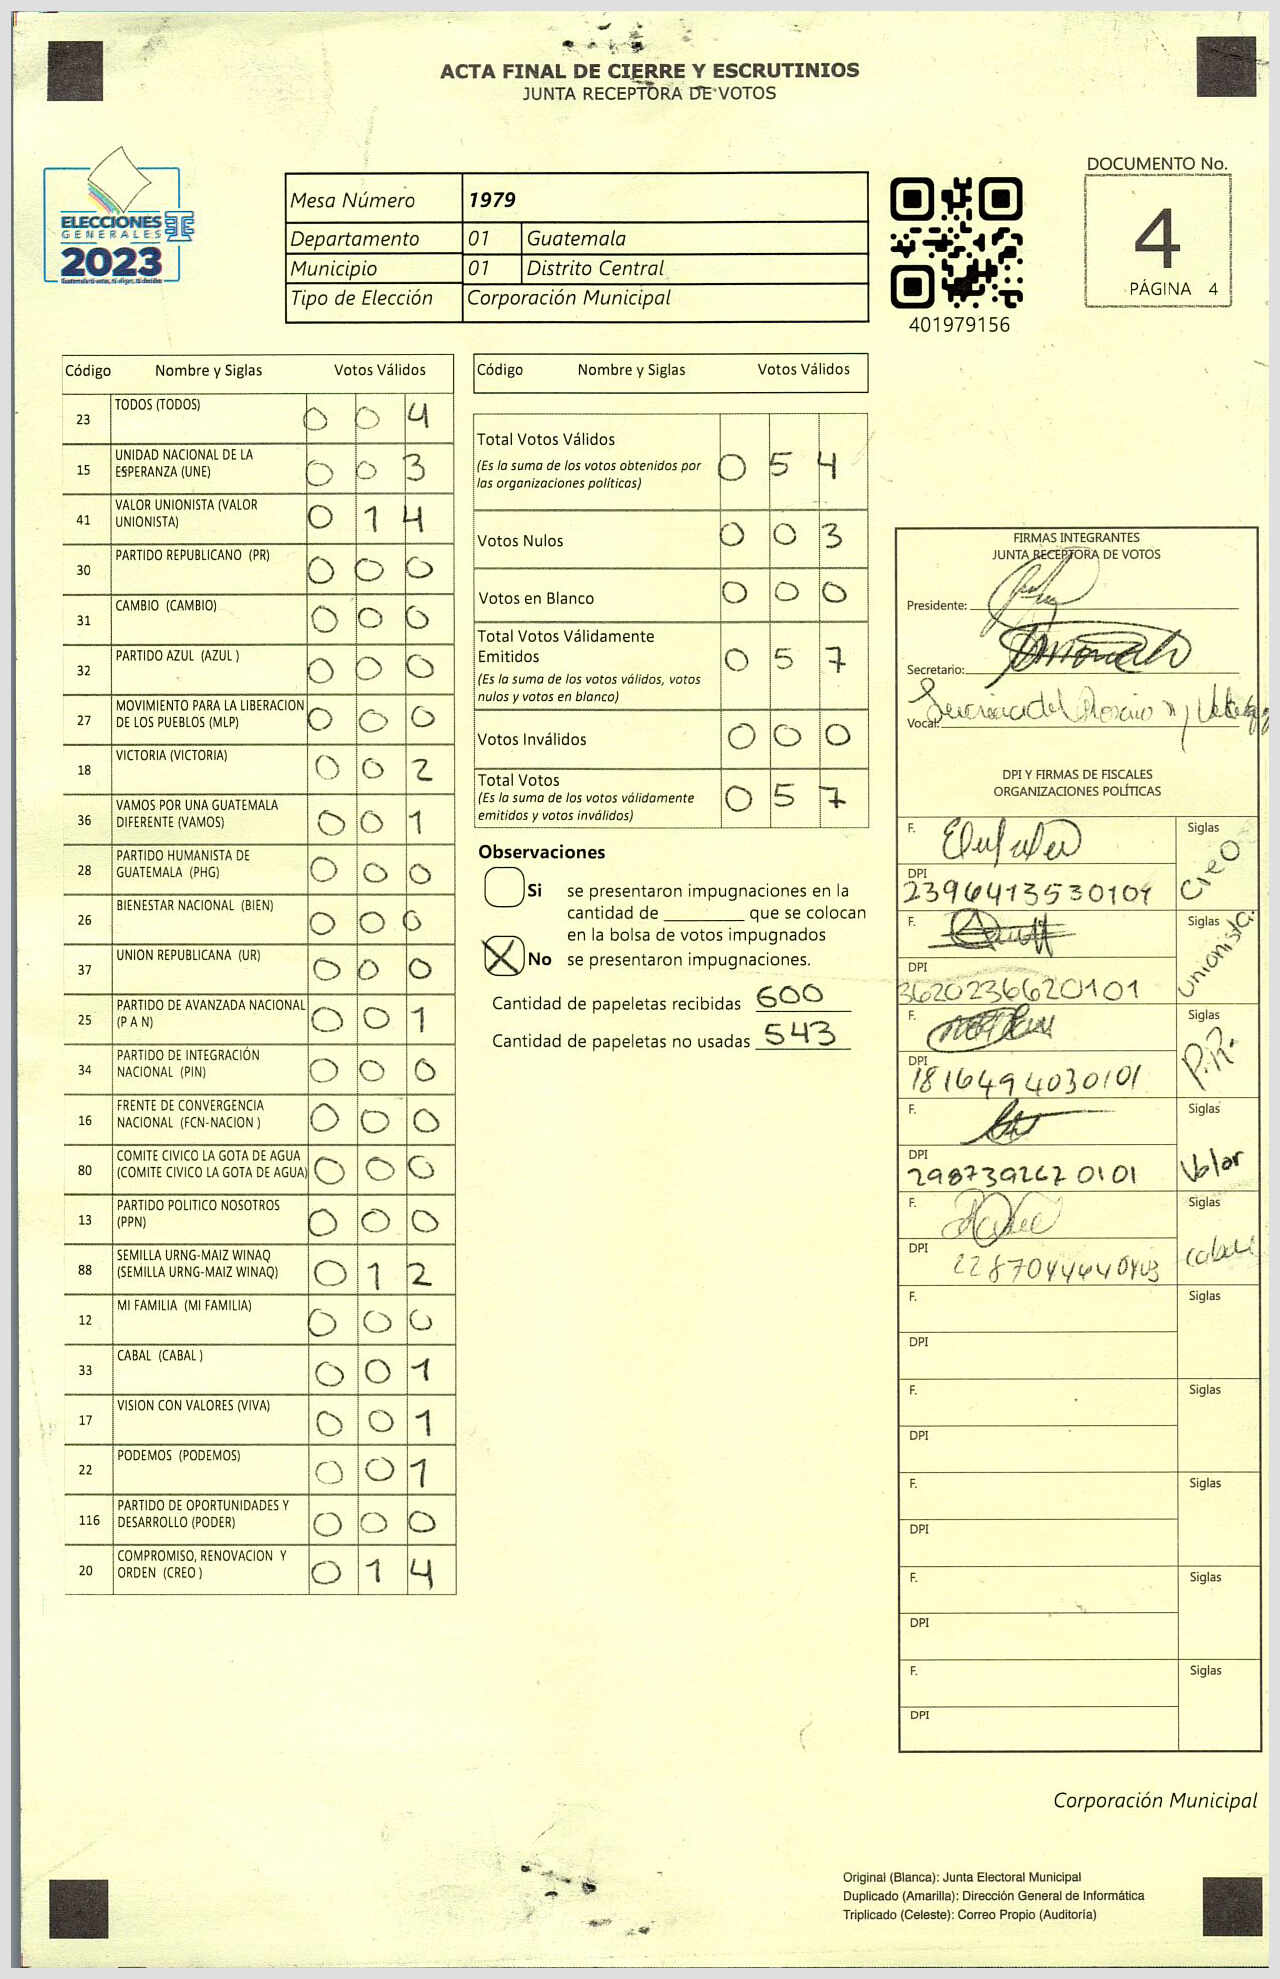 ACTA FINAL DE CIERRE Y ESCRUTINIOS
JUNTA RECEPTORA DE VOTOS
ELECCIONES
GENERALES
2023
Mesa Número 1979
Departamento 01 Guatemala
Municipio 01 Distrito Central
Tipo de Elección Corporación Municipal
401979156
DOCUMENTO No.
4
PÁGINA 4
Código Nombre y Siglas Votos Válidos
23 TODOS (TODOS) 0 0 4
15 UNIDAD NACIONAL DE LA
ESPERANZA (UNE) 0 0 3
41 VALOR UNIONISTA (VALOR
UNIONISTA) 0 1 4
30 PARTIDO REPUBLICANO (PR) 0 0 0
31 CAMBIO (CAMBIO) 0 0 0
32 PARTIDO AZUL (AZUL ) 0 0 0
27 MOVIMIENTO PARA LA LIBERACION
DE LOS PUEBLOS (MLP) 0 0 0
18 VICTORIA (VICTORIA) 0 0 2
36 VAMOS POR UNA GUATEMALA
DIFERENTE (VAMOS) 0 0 1
28 PARTIDO HUMANISTA DE
GUATEMALA (PHG) 0 0 0
26 BIENESTAR NACIONAL (BIEN) 0 0 0
37 UNION REPUBLICANA (UR) 0 0 0
25 PARTIDO DE AVANZADA NACIONAL
(P A N) 0 0 1
34 PARTIDO DE INTEGRACIÓN
NACIONAL (PIN) 0 0 0
16 FRENTE DE CONVERGENCIA
NACIONAL (FCN-NACION ) 0 0 0
80 COMITE CIVICO LA GOTA DE AGUA
(COMITE CIVICO LA GOTA DE AGUA) 0 0 0
13 PARTIDO POLITICO NOSOTROS
(PPN) 0 0 0
88 SEMILLA URNG-MAIZ WINAQ
(SEMILLA URNG-MAIZ WINAQ) 0 1 2
12 MI FAMILIA (MI FAMILIA) 0 0 0
33 CABAL (CABAL ) 0 0 1
17 VISION CON VALORES (VIVA) 0 0 1
22 PODEMOS (PODEMOS) 0 0 1
116 PARTIDO DE OPORTUNIDADES Y
DESARROLLO (PODER) 0 0 0
20 COMPROMISO, RENOVACION Y
ORDEN (CREO ) 0 1 4
Código Nombre y Siglas Votos Válidos
Total Votos Válidos
(Es la suma de los votos obtenidos por
las organizaciones políticas) 0 5 4
Votos Nulos 0 0 3
Votos en Blanco 0 0 0
Total Votos Válidamente
Emitidos 0 5 7
(Es la suma de los votos válidos, votos
nulos y votos en blanco)
Votos Inválidos 0 0 0
Total Votos
(Es la suma de los votos válidamente
emitidos y votos inválidos) 0 5 7
Observaciones
Si se presentaron impugnaciones en la
cantidad de ________ que se colocan
en la bolsa de votos impugnados
X No se presentaron impugnaciones.
Cantidad de papeletas recibidas 600
Cantidad de papeletas no usadas 543
FIRMAS INTEGRANTES
JUNTA RECEPTORA DE VOTOS
Presidente:
Secretario:
Vocal:
DPI Y FIRMAS DE FISCALES
ORGANIZACIONES POLÍTICAS
F. Siglas
Creo
DPI
2396413530101
F. Siglas
Unionista.
DPI
3620236620101
F. Siglas
P.R.
DPI
1816494030101
F. Siglas
Valor
DPI
2987392620101
F. Siglas
Cabal
DPI
F. Siglas
DPI
F. Siglas
DPI
F. Siglas
DPI
F. Siglas
DPI
F. Siglas
DPI
Corporación Municipal
Original (Blanca): Junta Electoral Municipal
Duplicado (Amarilla): Dirección General de Informática
Triplicado (Celeste): Correo Propio (Auditoría)